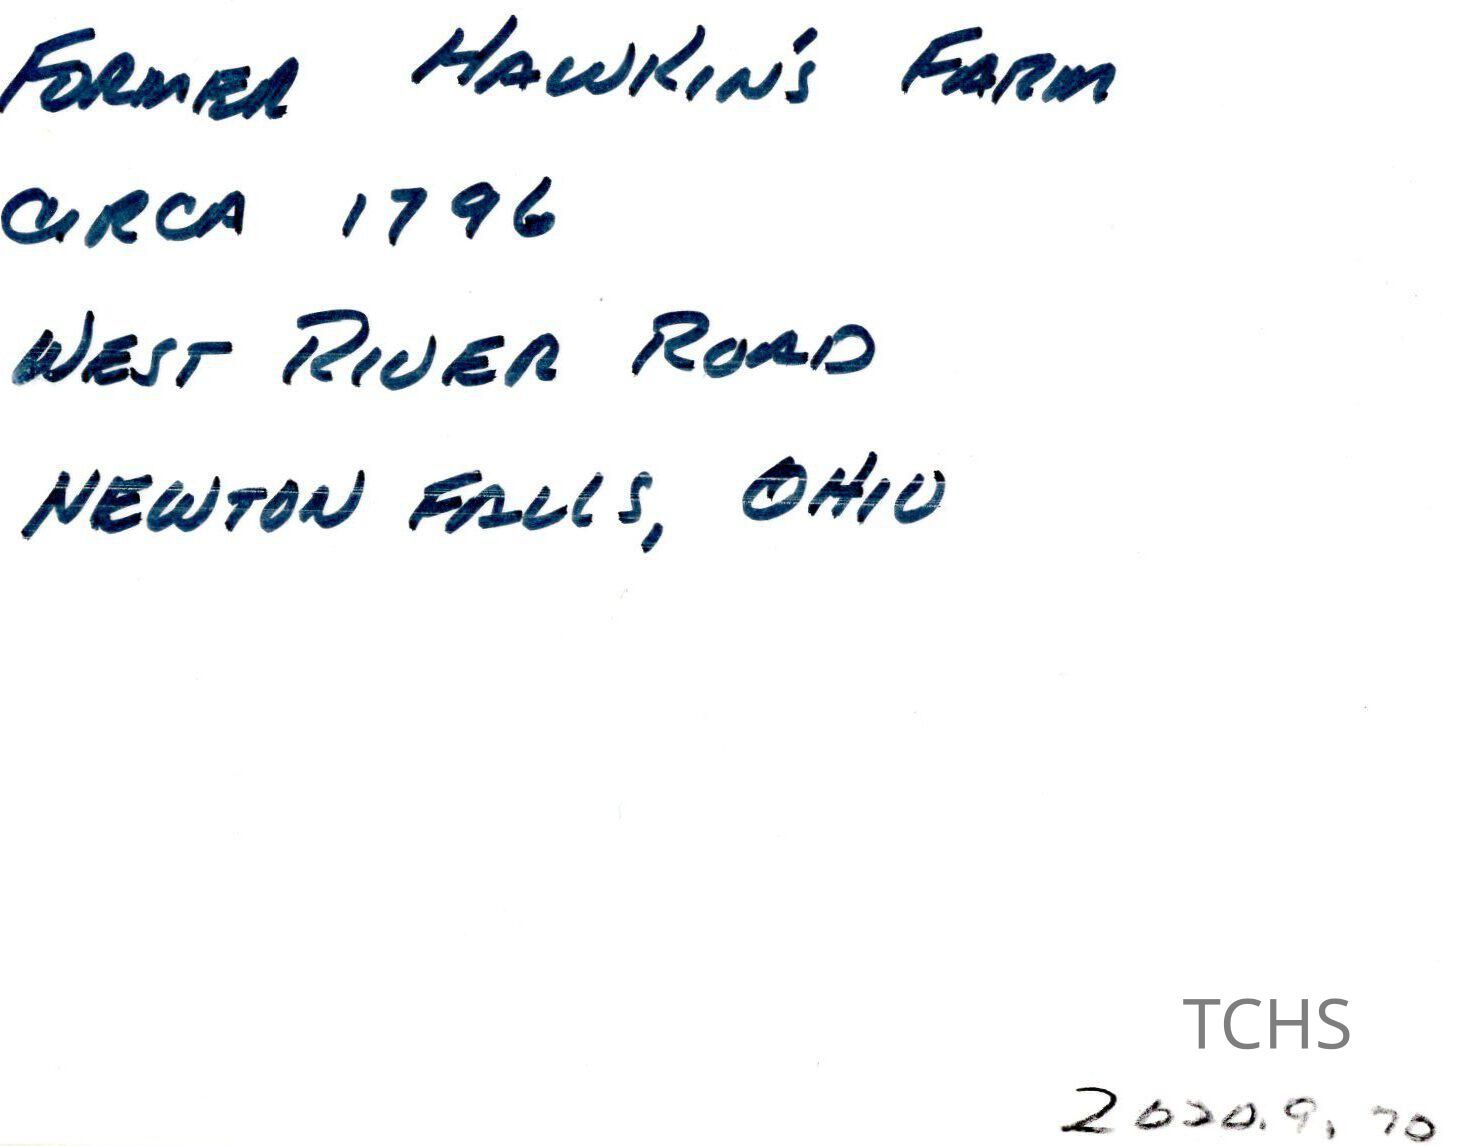 FORMER HAWKIN'S FARM
CIRCA 1796
WEST RIVER ROAD
NEWTON FALLS, OHIO
TCHS
2020.9.70